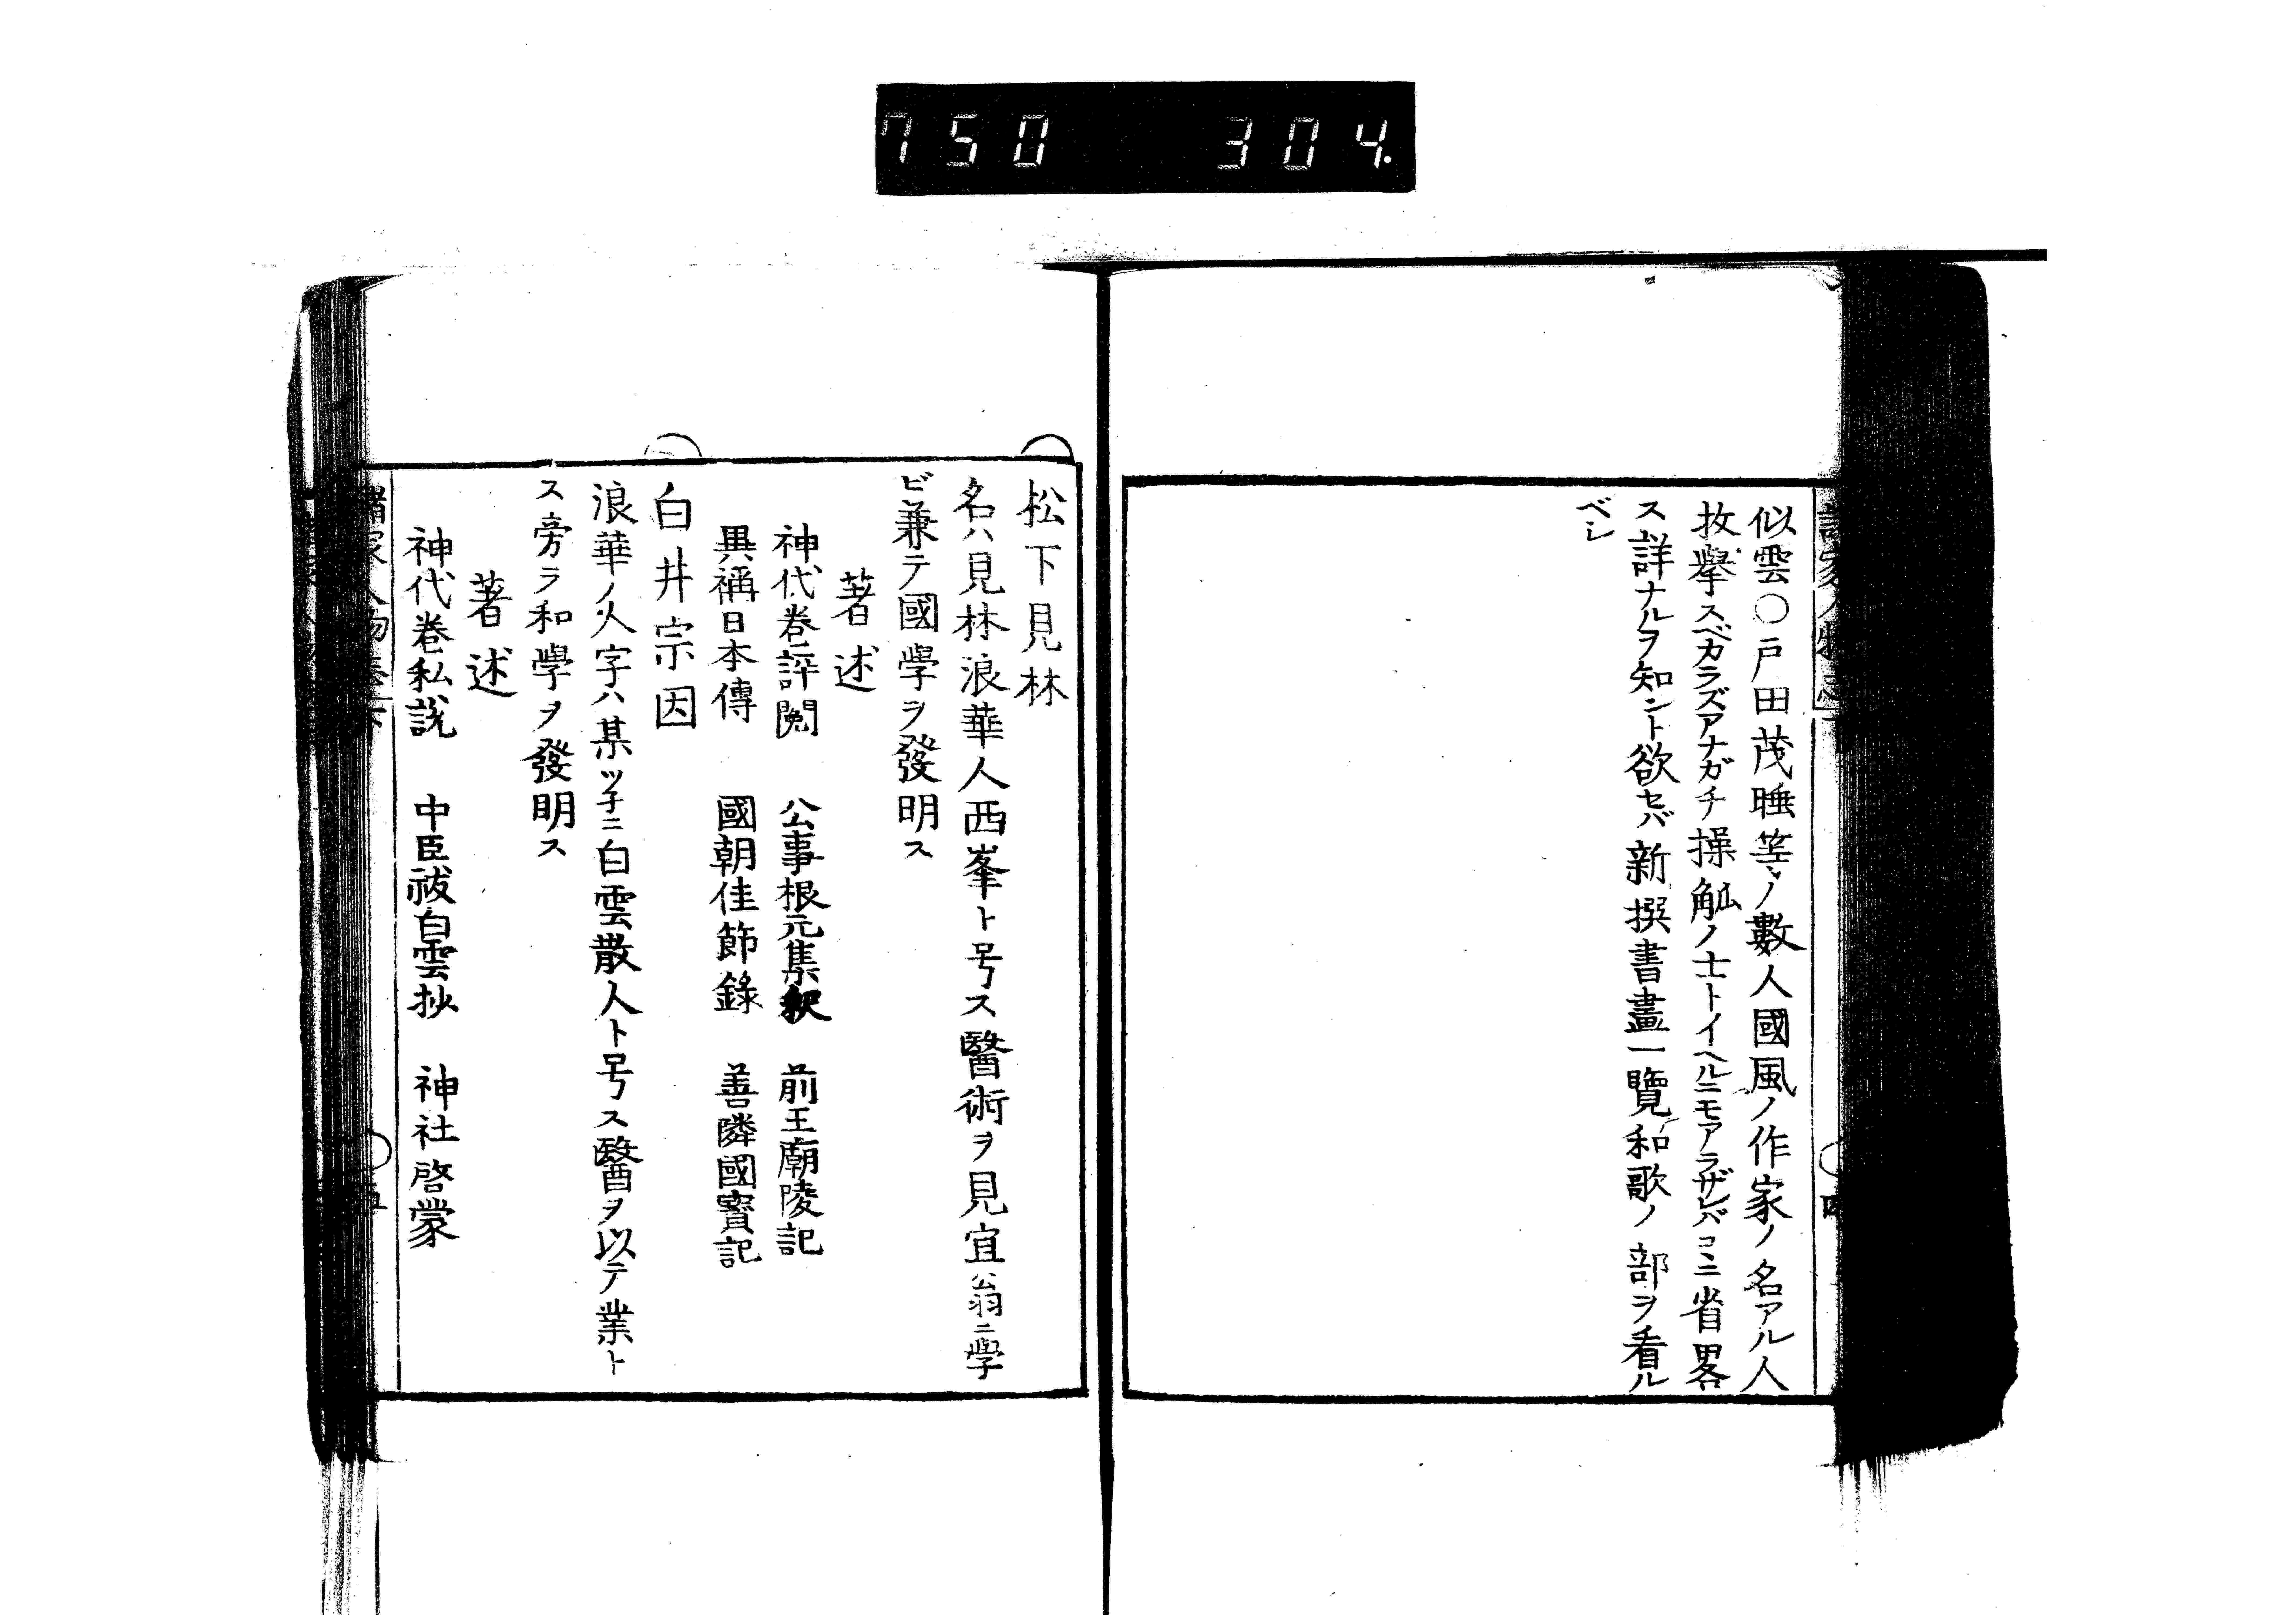 750 304.
似雲○戸田茂睡等ノ數人國風ノ作家ノ名アル人
枚擧スベカラズアナガチ操觚ノ士トイヘルニモアラザレバコヽニ省畧
ス詳ナルヲ知ント欲セバ新撰書畫一覽和歌ノ部ヲ看ル
ベシ
松下見林
名ハ見林浪華人西峯ト号ス醫術ヲ見宜公翁ニ學
ビ兼テ國學ヲ發明ス
著述
神代巻評閲 公事根元集釈 前王廟陵記
異稱日本傳 國朝佳節錄 善隣國寳記
白井宗因
浪華ノ人字ハ某ツ子ニ白雲散人ト号ス醫ヲ以テ業ト
ス旁ラ和學ヲ發明ス
著述
神代巻私説 中臣祓白雲抄 神社啓蒙